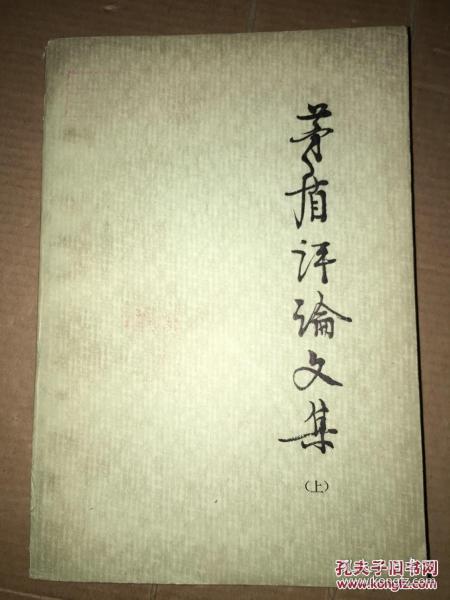 茅盾评论文集
（上）
孔夫子旧书网